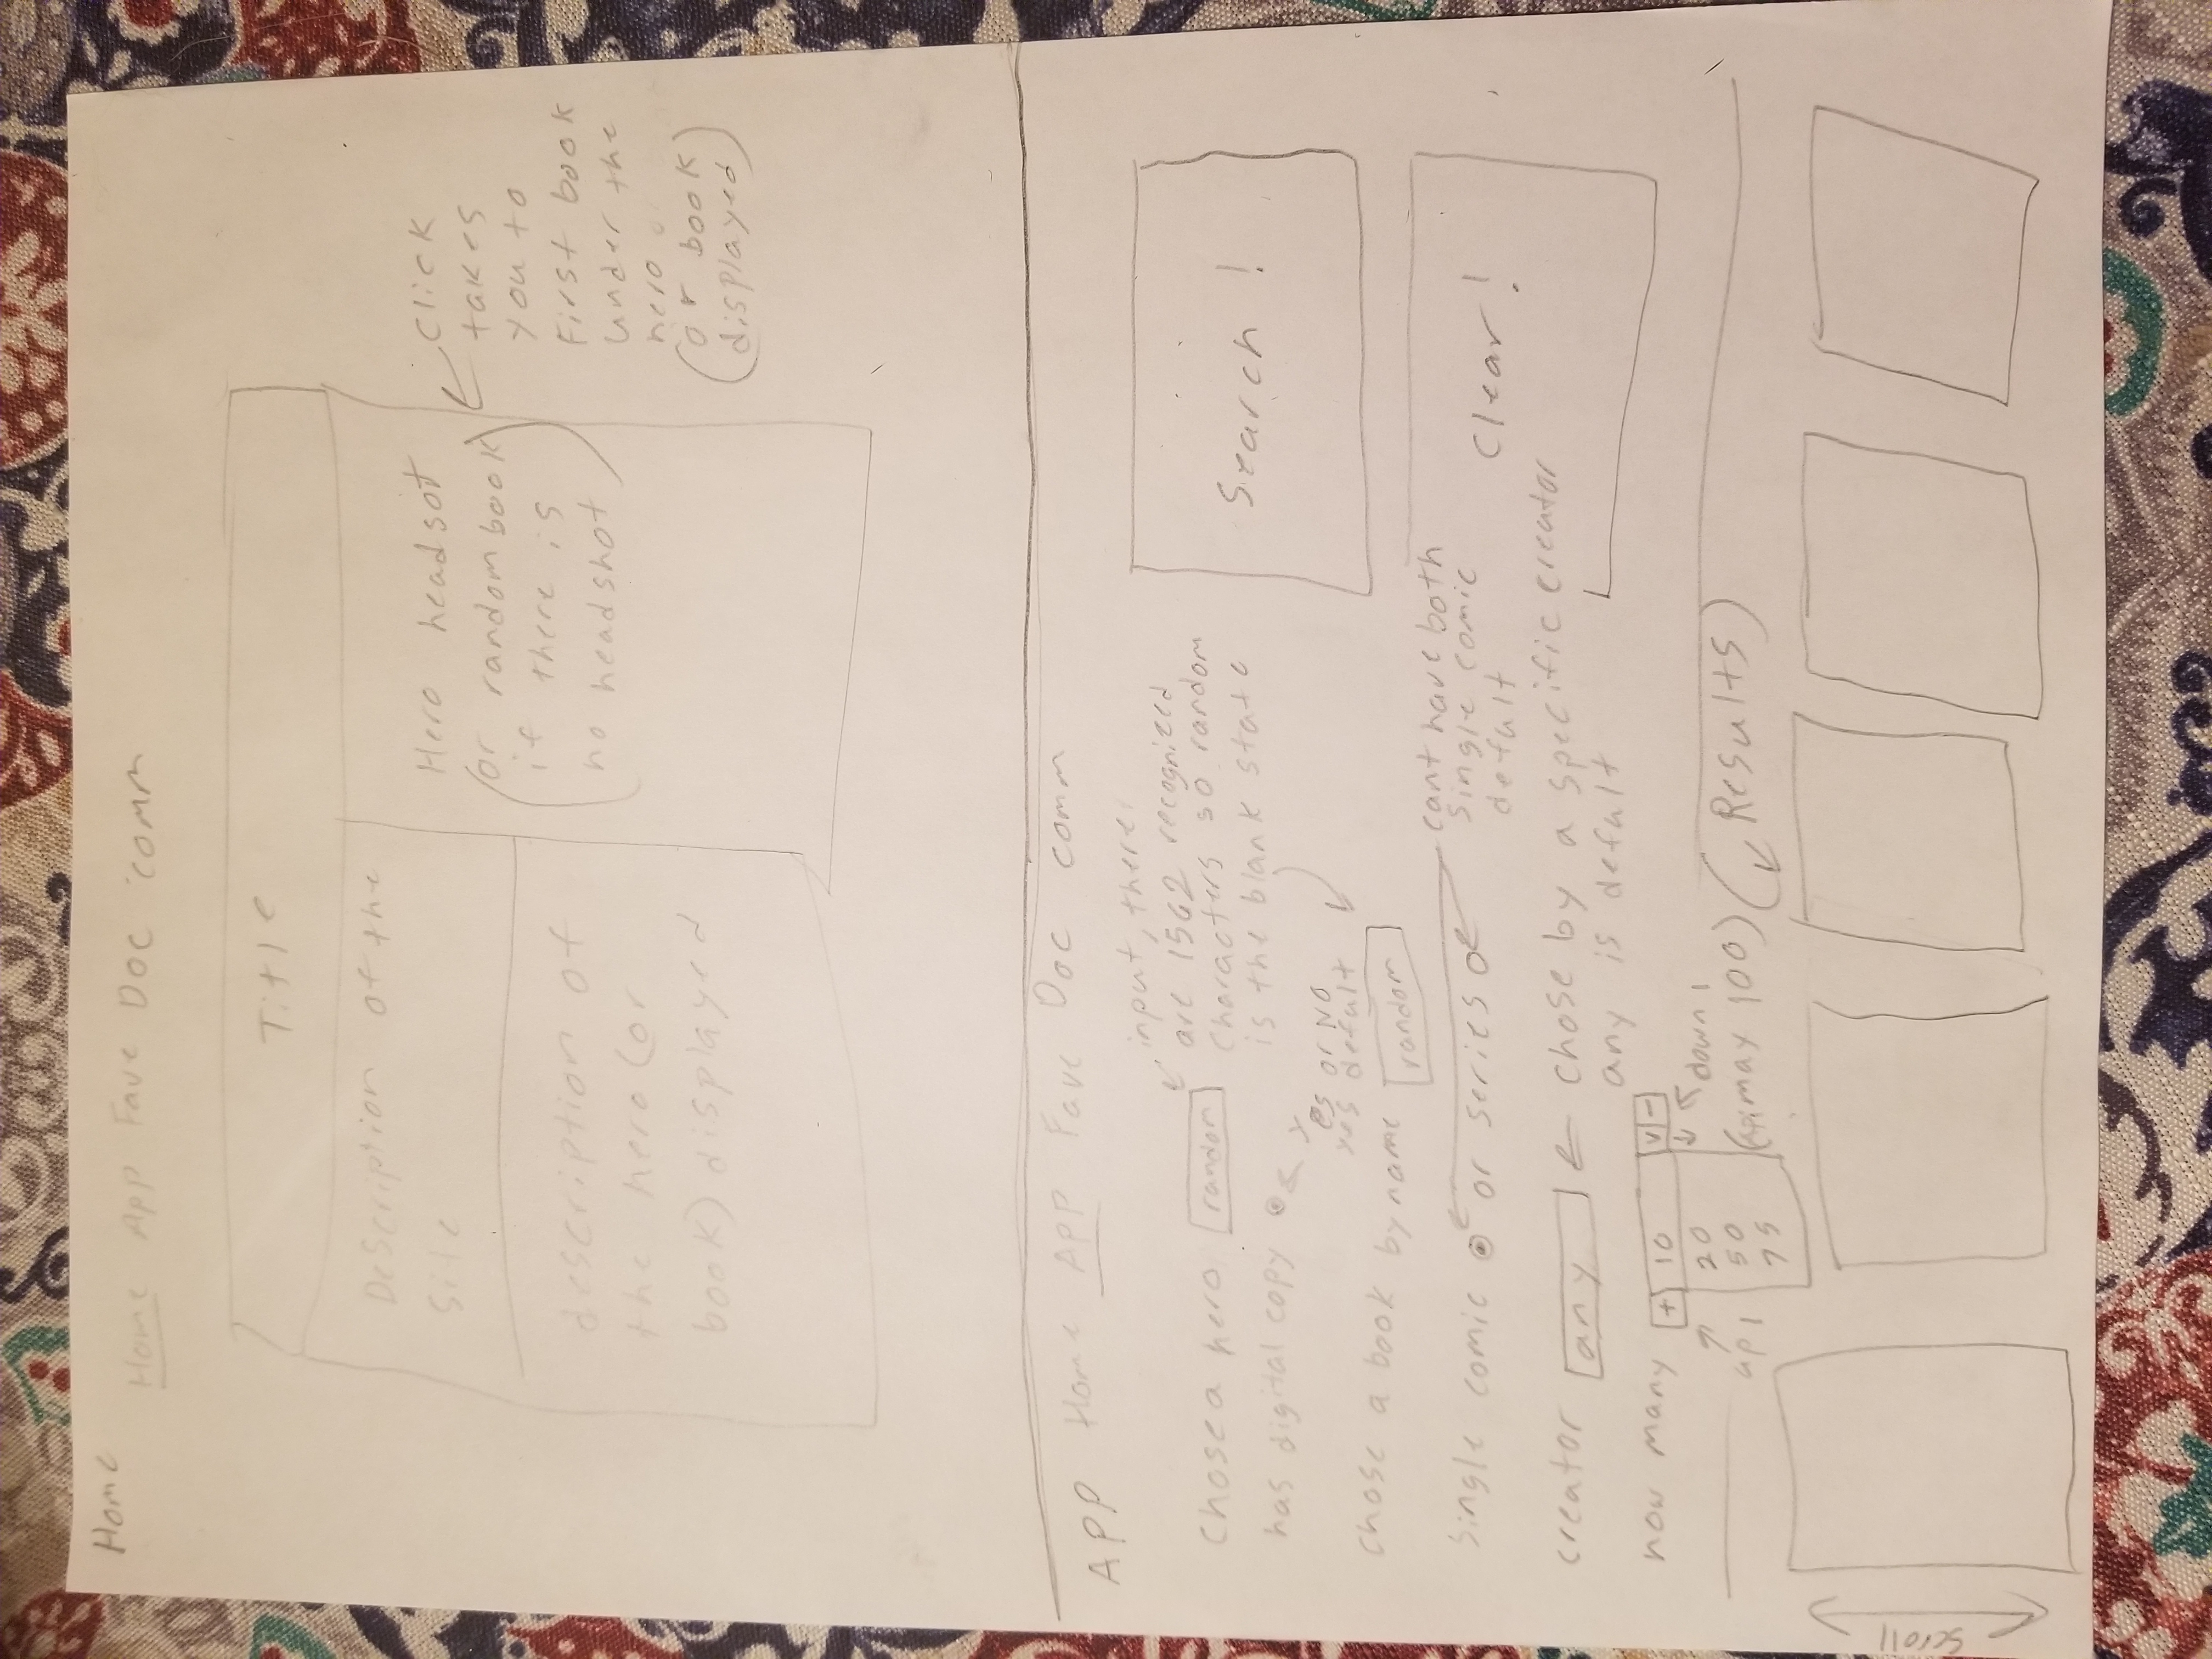 Home
Home App Fave Doc comm
Title
Description of the
Site
description of
the hero (or
book) displayed
Hero headsot
(or random book
if there is
no headshot)
Click
takes
you to
First book
under the
hero
(or book
displayed)
APP Home App Fave Doc comm
input, there
are 1562 recognized
characters so random
is the blank state
chose a hero random
has digital copy
yes or NO
yes defult
chose a book by name random
Single comic or series
cant have both
single comic
defult
creator any
chose by a specific creator
any is defult
how many + 10 v -
20
50
75
up 1
down 1
max 100)
Search !
Clear !
(Results)
scroll